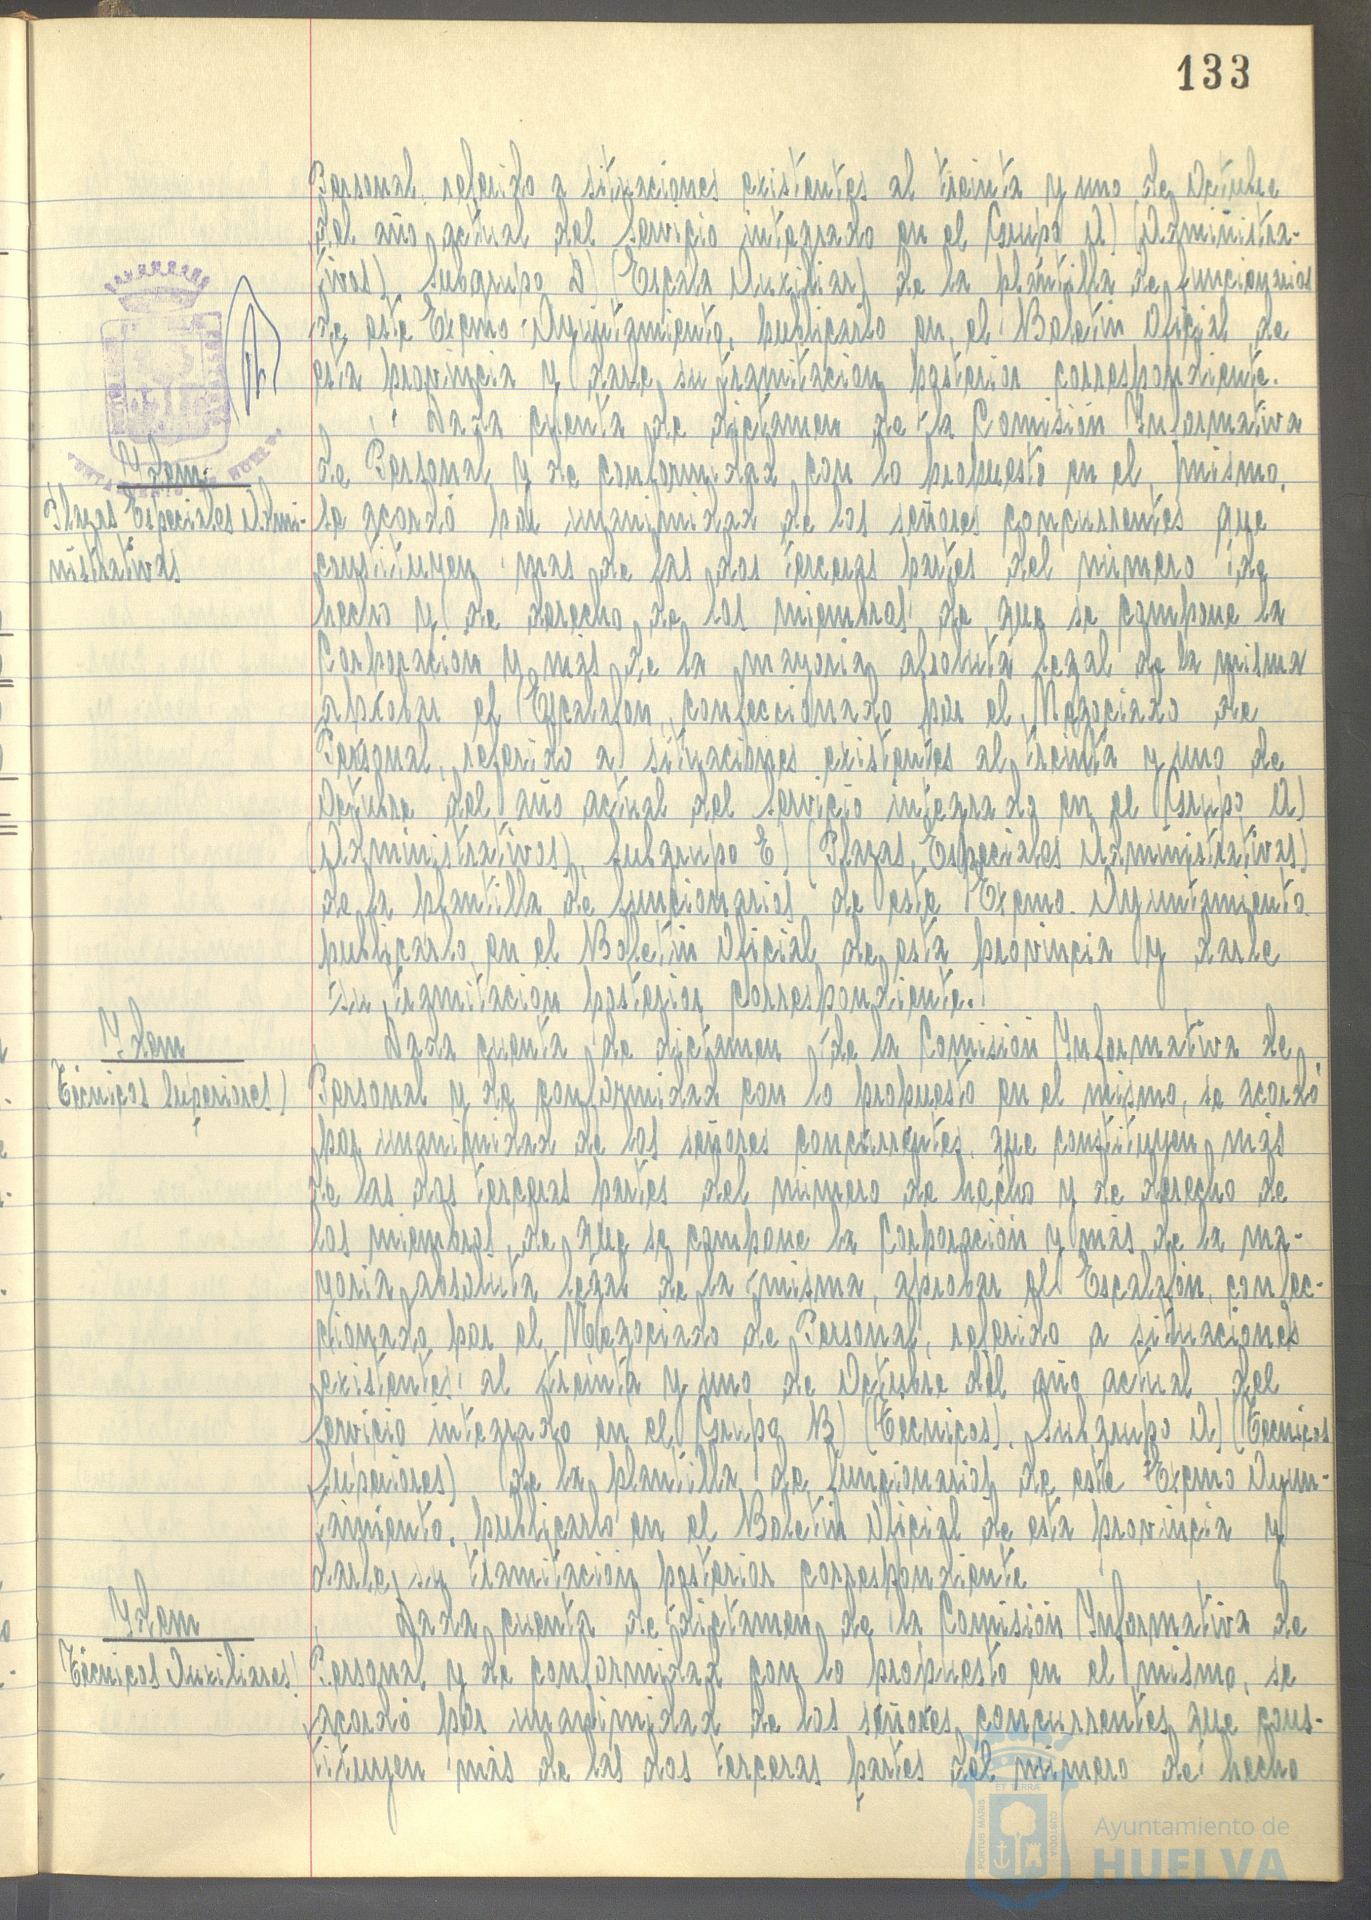 133
Personal, referido a situaciones existentes al treinta y uno de Octubre
del año actual del Servicio integrado en el Grupo A) (Administra-
tivos), Subgrupo D) (Escala Auxiliar) de la plantilla de funcionarios
de este Excmo Ayuntamiento, publicarlo en el Boletín Oficial de
esta provincia y darle su tramitación posterior correspondiente.
Ydem.
Plazas Especiales Admi-
nistrativas
Dada cuenta de dictamen de la Comisión Informativa
de Personal y de conformidad con lo propuesto en el mismo,
se acordó por unanimidad de los señores concurrentes que
constituyen mas de las dos terceras partes del número de
hecho y de derecho de los miembros de que se compone la
Corporación y más de la mayoria absoluta legal de la misma
aprobar el Escalafón, confeccionado por el Negociado de
Personal, referido a situaciones existentes al treinta y uno de
Octubre del año actual del Servicio integrado en el Grupo A)
(Administrativos), Subgrupo E) (Plazas Especiales Administrativas)
de la plantilla de funcionarios de este Excmo. Ayuntamiento.
publicarlo en el Boletín Oficial de esta provincia y darle
su tramitación posterior correspondiente.
Ydem
(Técnicos Superiores)
Dada cuenta de dictamen de la Comisión Informativa de
Personal y de conformidad con lo propuesto en el mismo, se acordó
por unanimidad de los señores concurrentes, que constituyen más
de las dos terceras partes del número de hecho y de derecho de
los miembros de que se compone la Corporación y más de la ma-
yoria absoluta legal de la misma, aprobar el Escalafón, confec-
cionado por el Negociado de Personal, referido a situaciones
existentes al treinta y uno de Octubre del año actual del
Servicio integrado en el Grupo B) (Técnicos), Subgrupo A) (Tecnicos
Superiores) de la plantilla de funcionarios de este Excmo Ayun-
tamiento, publicarlo en el Boletín Oficial de esta provincia y
darle su tramitación posterior correspondiente
Ydem
Técnicos Auxiliares)
Dada cuenta de dictamen de la Comisión Informativa de
Personal y de conformidad con lo propuesto en el mismo, se
acordó por unanimidad de los señores concurrentes que cons-
tituyen más de las dos terceras partes del número de hecho
PORTUS MARIS
ET TERRÆ
CUSTODIA
Ayuntamiento de
HUELVA